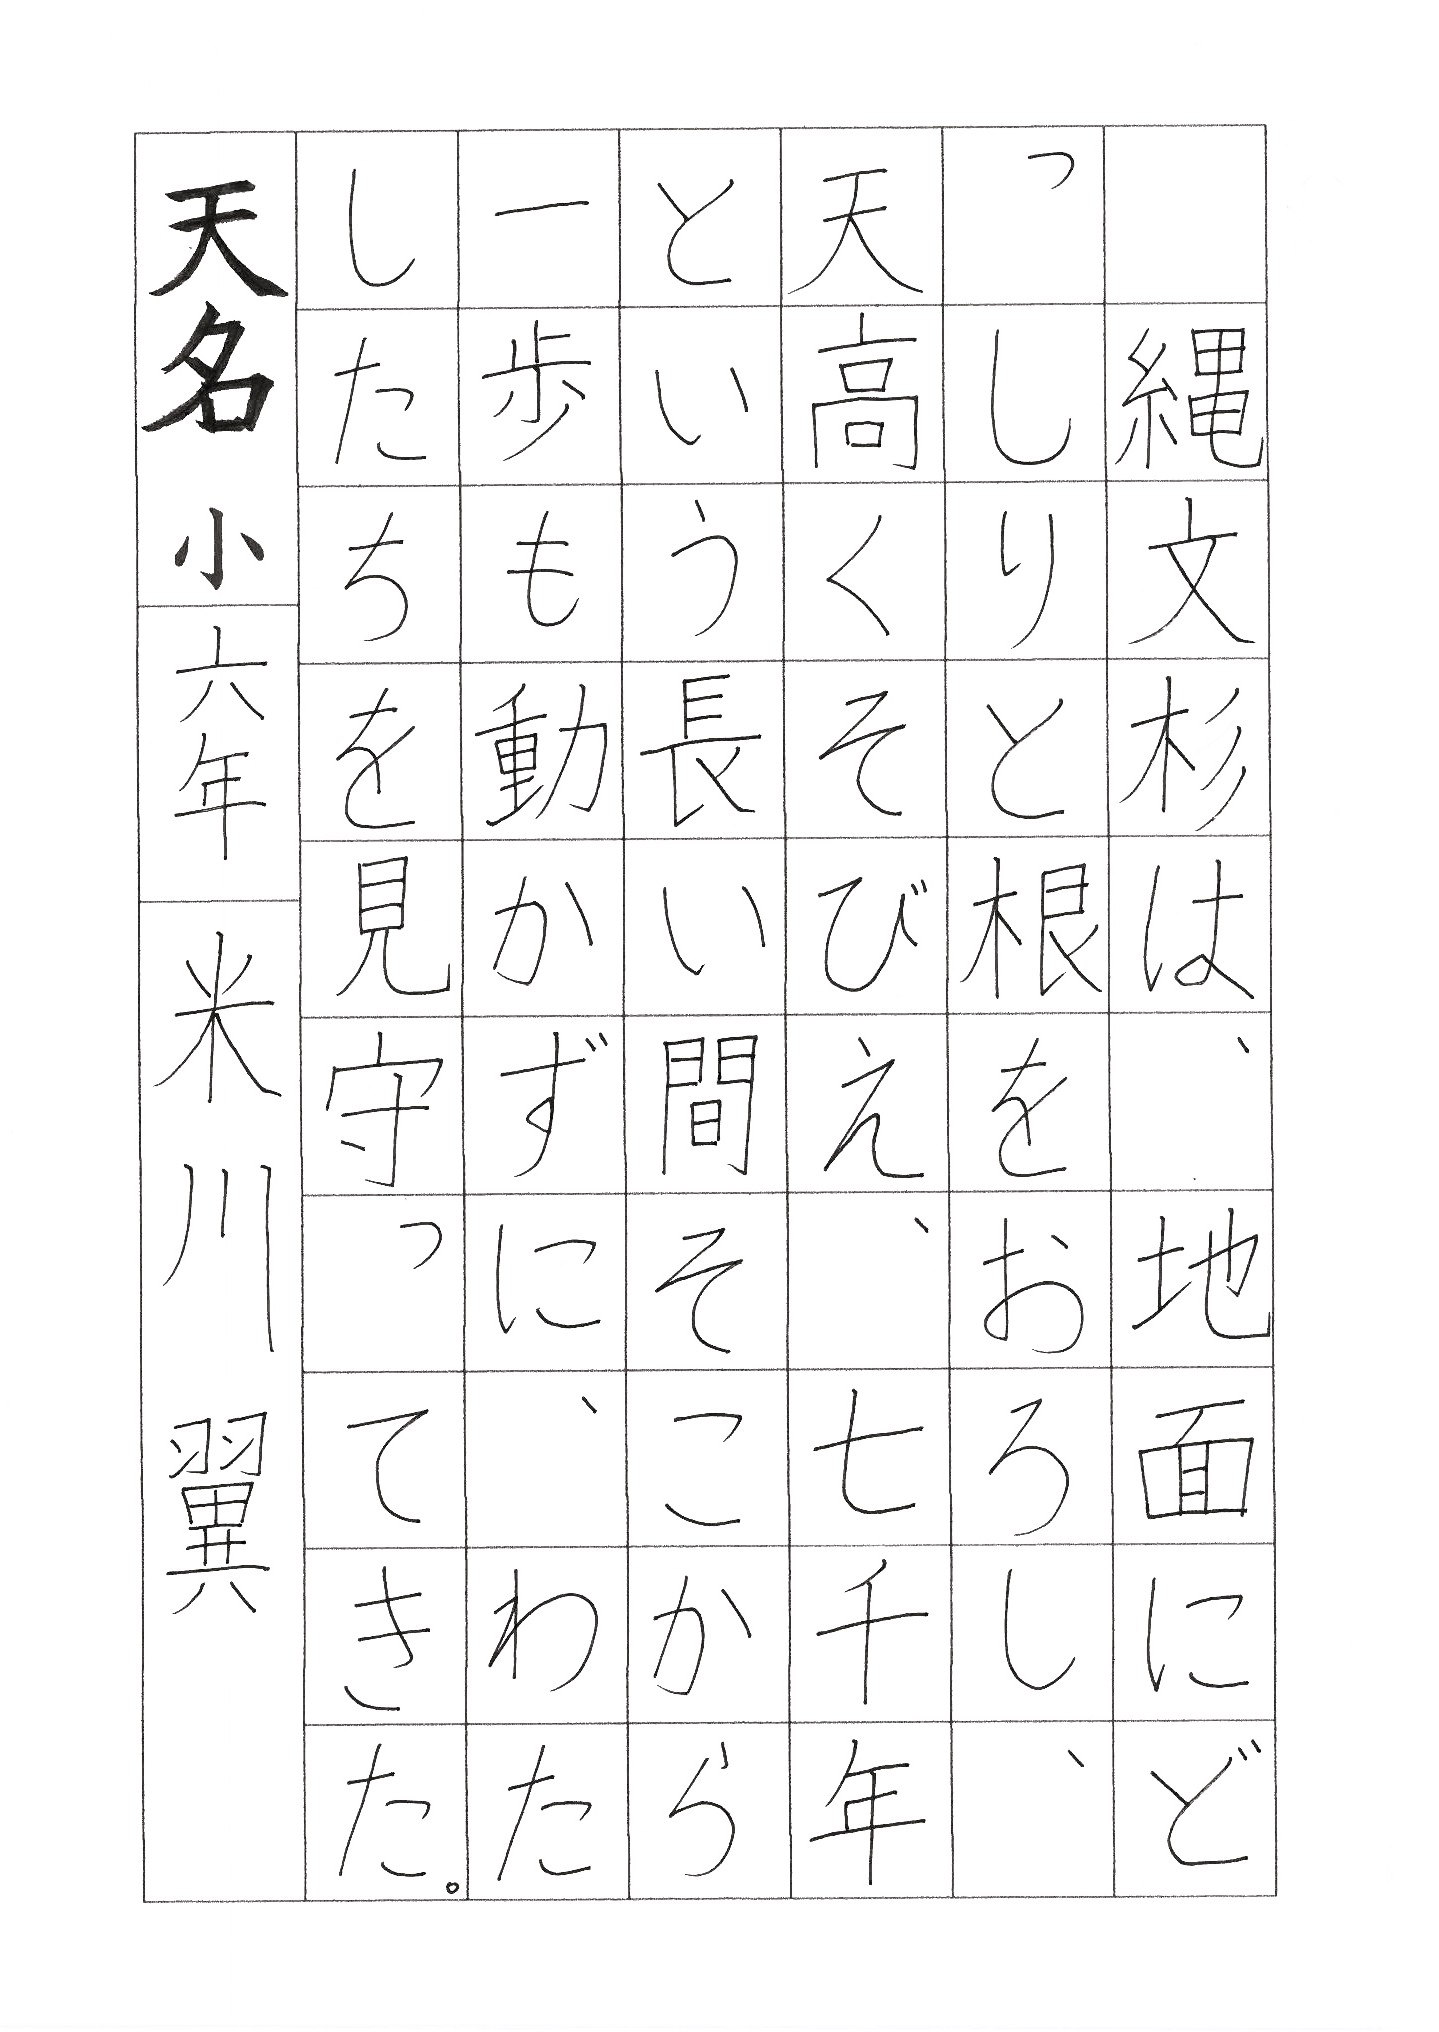 縄文杉は、地面にど
っしりと根をおろし、
天高くそびえ、七千年
という長い間そこから
一歩も動かずに、わた
したちを見守ってきた。
天名小六年米川翼